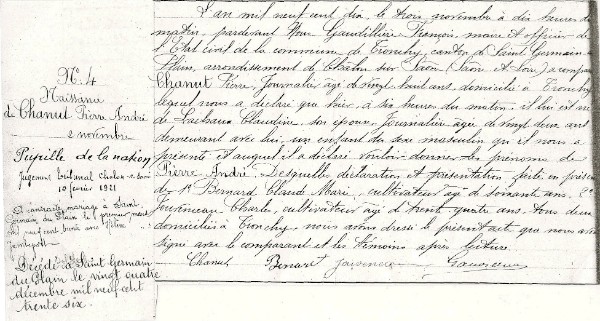 N° 4
Naissance
de Chanut Pierre André
2 novembre
Pupille de la nation
Jugement Tribunal Chalon s. Saône
10 février 1921
A contracté mariage à Saint
Germain du Plain le premier mars
mil neuf cent trente avec
Décédé à Saint Germain
du Plain le vingt quatre
décembre mil neuf cent
trente six.
L'an mil neuf cent dix, le trois novembre à dix heures du
matin, pardevant Nous Gaudillière François, maire et officier de
l'Etat civil de la commune de Tronchy, canton de Saint Germain du
Plain, arrondissement de Chalon sur Saône (Saône et Loire) a comparu
Chanut Pierre, Journalier âgé de vingt huit ans domicilié à Tronchy
lequel nous a déclaré que hier, à six heures du matin, il lui est né
de Claudine, son épouse, Journalière âgée de vingt deux ans
demeurant avec lui, un enfant du sexe masculin qu'il nous a
présenté et auquel il a déclaré vouloir donner les prénoms de
Pierre André. Lesquelles déclaration et présentation faites en présence
de 1° Bernard Claude Marie, cultivateur âgé de soixante ans, 2°
Journeau Charles, cultivateur âgé de trente quatre ans tous deux
domiciliés à Tronchy, nous avons dressé le présent acte que nous avons
signé avec le comparant et les témoins après lecture.
Chanut Bernard